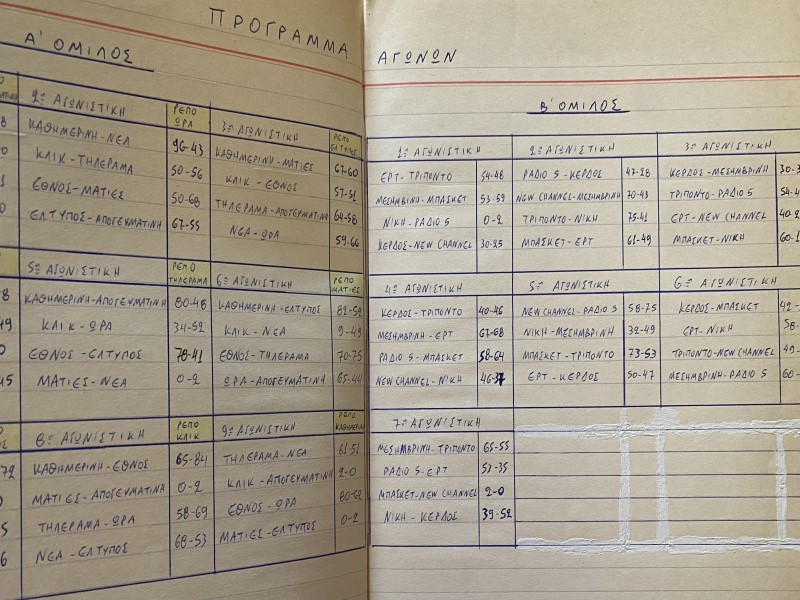 ΠΡΟΓΡΑΜΜΑ
Α' ΟΜΙΛΟΣ
2η ΑΓΩΝΙΣΤΙΚΗ ΡΕΠΟ ΩΡΑ
ΚΑΘΗΜΕΡΙΝΗ-ΝΕΑ 96-43
ΚΛΙΚ-ΤΗΛΕΡΑΜΑ 50-56
ΕΘΝΟΣ-ΜΑΤΙΕΣ 50-68
ΕΛΤΥΠΟΣ-ΑΠΟΓΕΥΜΑΤΙΝΗ 67-55
3η ΑΓΩΝΙΣΤΙΚΗ ΡΕΠΟ ΕΛΤΥΠΟΣ
ΚΑΘΗΜΕΡΙΝΗ-ΜΑΤΙΕΣ 67-60
ΚΛΙΚ-ΕΘΝΟΣ 57-51
ΤΗΛΕΡΑΜΑ-ΑΠΟΓΕΥΜΑΤΙΝΗ 64-58
ΝΕΑ-ΩΡΑ 59-66
5η ΑΓΩΝΙΣΤΙΚΗ ΡΕΠΟ ΤΗΛΕΡΑΜΑ
ΚΑΘΗΜΕΡΙΝΗ-ΑΠΟΓΕΥΜΑΤΙΝΗ 80-48
ΚΛΙΚ-ΩΡΑ 34-52
ΕΘΝΟΣ-ΕΛΤΥΠΟΣ 78-41
ΜΑΤΙΕΣ-ΝΕΑ 0-2
6η ΑΓΩΝΙΣΤΙΚΗ ΡΕΠΟ ΜΑΤΙΕΣ
ΚΑΘΗΜΕΡΙΝΗ-ΕΛΤΥΠΟΣ 82-52
ΚΛΙΚ-ΝΕΑ 9-49
ΕΘΝΟΣ-ΤΗΛΕΡΑΜΑ 70-75
ΩΡΑ-ΑΠΟΓΕΥΜΑΤΙΝΗ 65-44
8η ΑΓΩΝΙΣΤΙΚΗ ΡΕΠΟ ΚΛΙΚ
ΚΑΘΗΜΕΡΙΝΗ-ΕΘΝΟΣ 65-84
ΜΑΤΙΕΣ-ΑΠΟΓΕΥΜΑΤΙΝΗ 0-2
ΤΗΛΕΡΑΜΑ-ΩΡΑ 58-69
ΝΕΑ-ΕΛΤΥΠΟΣ 68-53
9η ΑΓΩΝΙΣΤΙΚΗ ΡΕΠΟ ΚΑΘΗΜΕΡΙΝΗ
ΤΗΛΕΡΑΜΑ-ΝΕΑ 61-51
ΚΛΙΚ-ΑΠΟΓΕΥΜΑΤΙΝΗ 2-0
ΕΘΝΟΣ-ΩΡΑ 80-62
ΜΑΤΙΕΣ-ΕΛΤΥΠΟΣ 0-2
ΑΓΩΝΩΝ
Β' ΟΜΙΛΟΣ
1η ΑΓΩΝΙΣΤΙΚΗ
ΕΡΤ-ΤΡΙΠΟΝΤΟ 54-48
ΜΕΣΗΜΒΙΝΗ-ΜΠΑΣΚΕΤ 53-59
ΝΙΚΗ-ΡΑΔΙΟ 5 0-2
ΚΕΡΔΟΣ-NEW CHANNEL 30-25
2η ΑΓΩΝΙΣΤΙΚΗ
ΡΑΔΙΟ 5-ΚΕΡΔΟΣ 47-28
NEW CHANNEL-ΜΕΣΗΜΒΡΙΝΗ 70-43
ΤΡΙΠΟΝΤΟ-ΝΙΚΗ 75-41
ΜΠΑΣΚΕΤ-ΕΡΤ 61-49
3η ΑΓΩΝΙΣΤΙΚΗ
ΚΕΡΔΟΣ-ΜΕΣΗΜΒΡΙΝΗ 30-3
ΤΡΙΠΟΝΤΟ-ΡΑΔΙΟ 5 54-4
ΕΡΤ-NEW CHANNEL 40-2
ΜΠΑΣΚΕΤ-ΝΙΚΗ 60-1
4η ΑΓΩΝΙΣΤΙΚΗ
ΚΕΡΔΟΣ-ΤΡΙΠΟΝΤΟ 40-46
ΜΕΣΗΜΒΡΙΝΗ-ΕΡΤ 67-68
ΡΑΔΙΟ 5-ΜΠΑΣΚΕΤ 58-64
NEW CHANNEL-ΝΙΚΗ 46-37
5η ΑΓΩΝΙΣΤΙΚΗ
NEW CHANNEL-ΡΑΔΙΟ 5 58-75
ΝΙΚΗ-ΜΕΣΗΜΒΡΙΝΗ 32-49
ΜΠΑΣΚΕΤ-ΤΡΙΠΟΝΤΟ 73-53
ΕΡΤ-ΚΕΡΔΟΣ 50-47
6η ΑΓΩΝΙΣΤΙΚΗ
ΚΕΡΔΟΣ-ΜΠΑΣΚΕΤ 42-
ΕΡΤ-ΝΙΚΗ 58-
ΤΡΙΠΟΝΤΟ-NEW CHANNEL 49-
ΜΕΣΗΜΒΡΙΝΗ-ΡΑΔΙΟ 5 60-
7η ΑΓΩΝΙΣΤΙΚΗ
ΜΕΣΗΜΒΡΙΝΗ-ΤΡΙΠΟΝΤΟ 65-55
ΡΑΔΙΟ 5-ΕΡΤ 57-35
ΜΠΑΣΚΕΤ-NEW CHANNEL 2-0
ΝΙΚΗ-ΚΕΡΔΟΣ 39-52